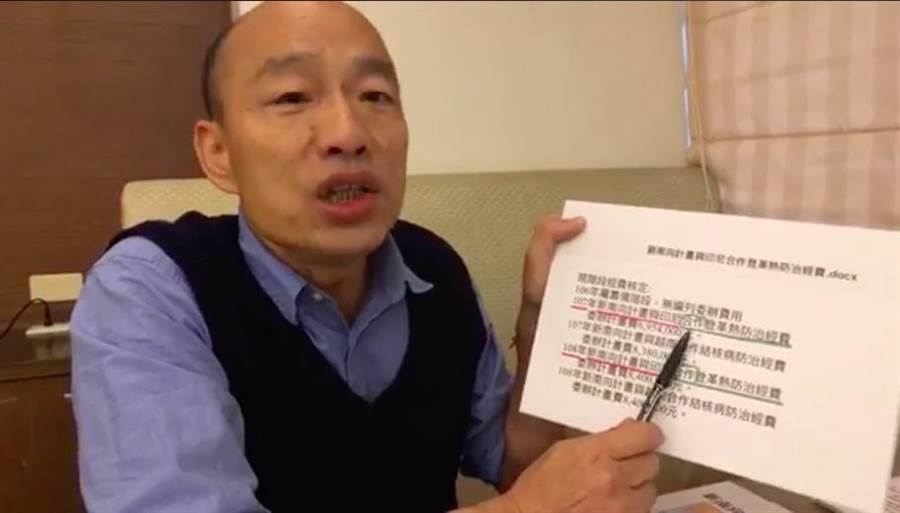 新南向計畫與印尼合作登革熱防治經費.docx
現階段經費核定:
106年屬籌備階段，無編列委辦費用
107年新南向計畫與印尼合作登革熱防治經費
委辦計畫費6,954,000
107年新南向計畫與越南 作結核病防治經費
委辦計畫費8,380,00 元。
108年新南向計畫與印 合作登革熱防治經費
委辦計畫費8,400, 元。
108年新南向計畫與 合作結核病防治經費
委辦計畫費8,400, 00元。